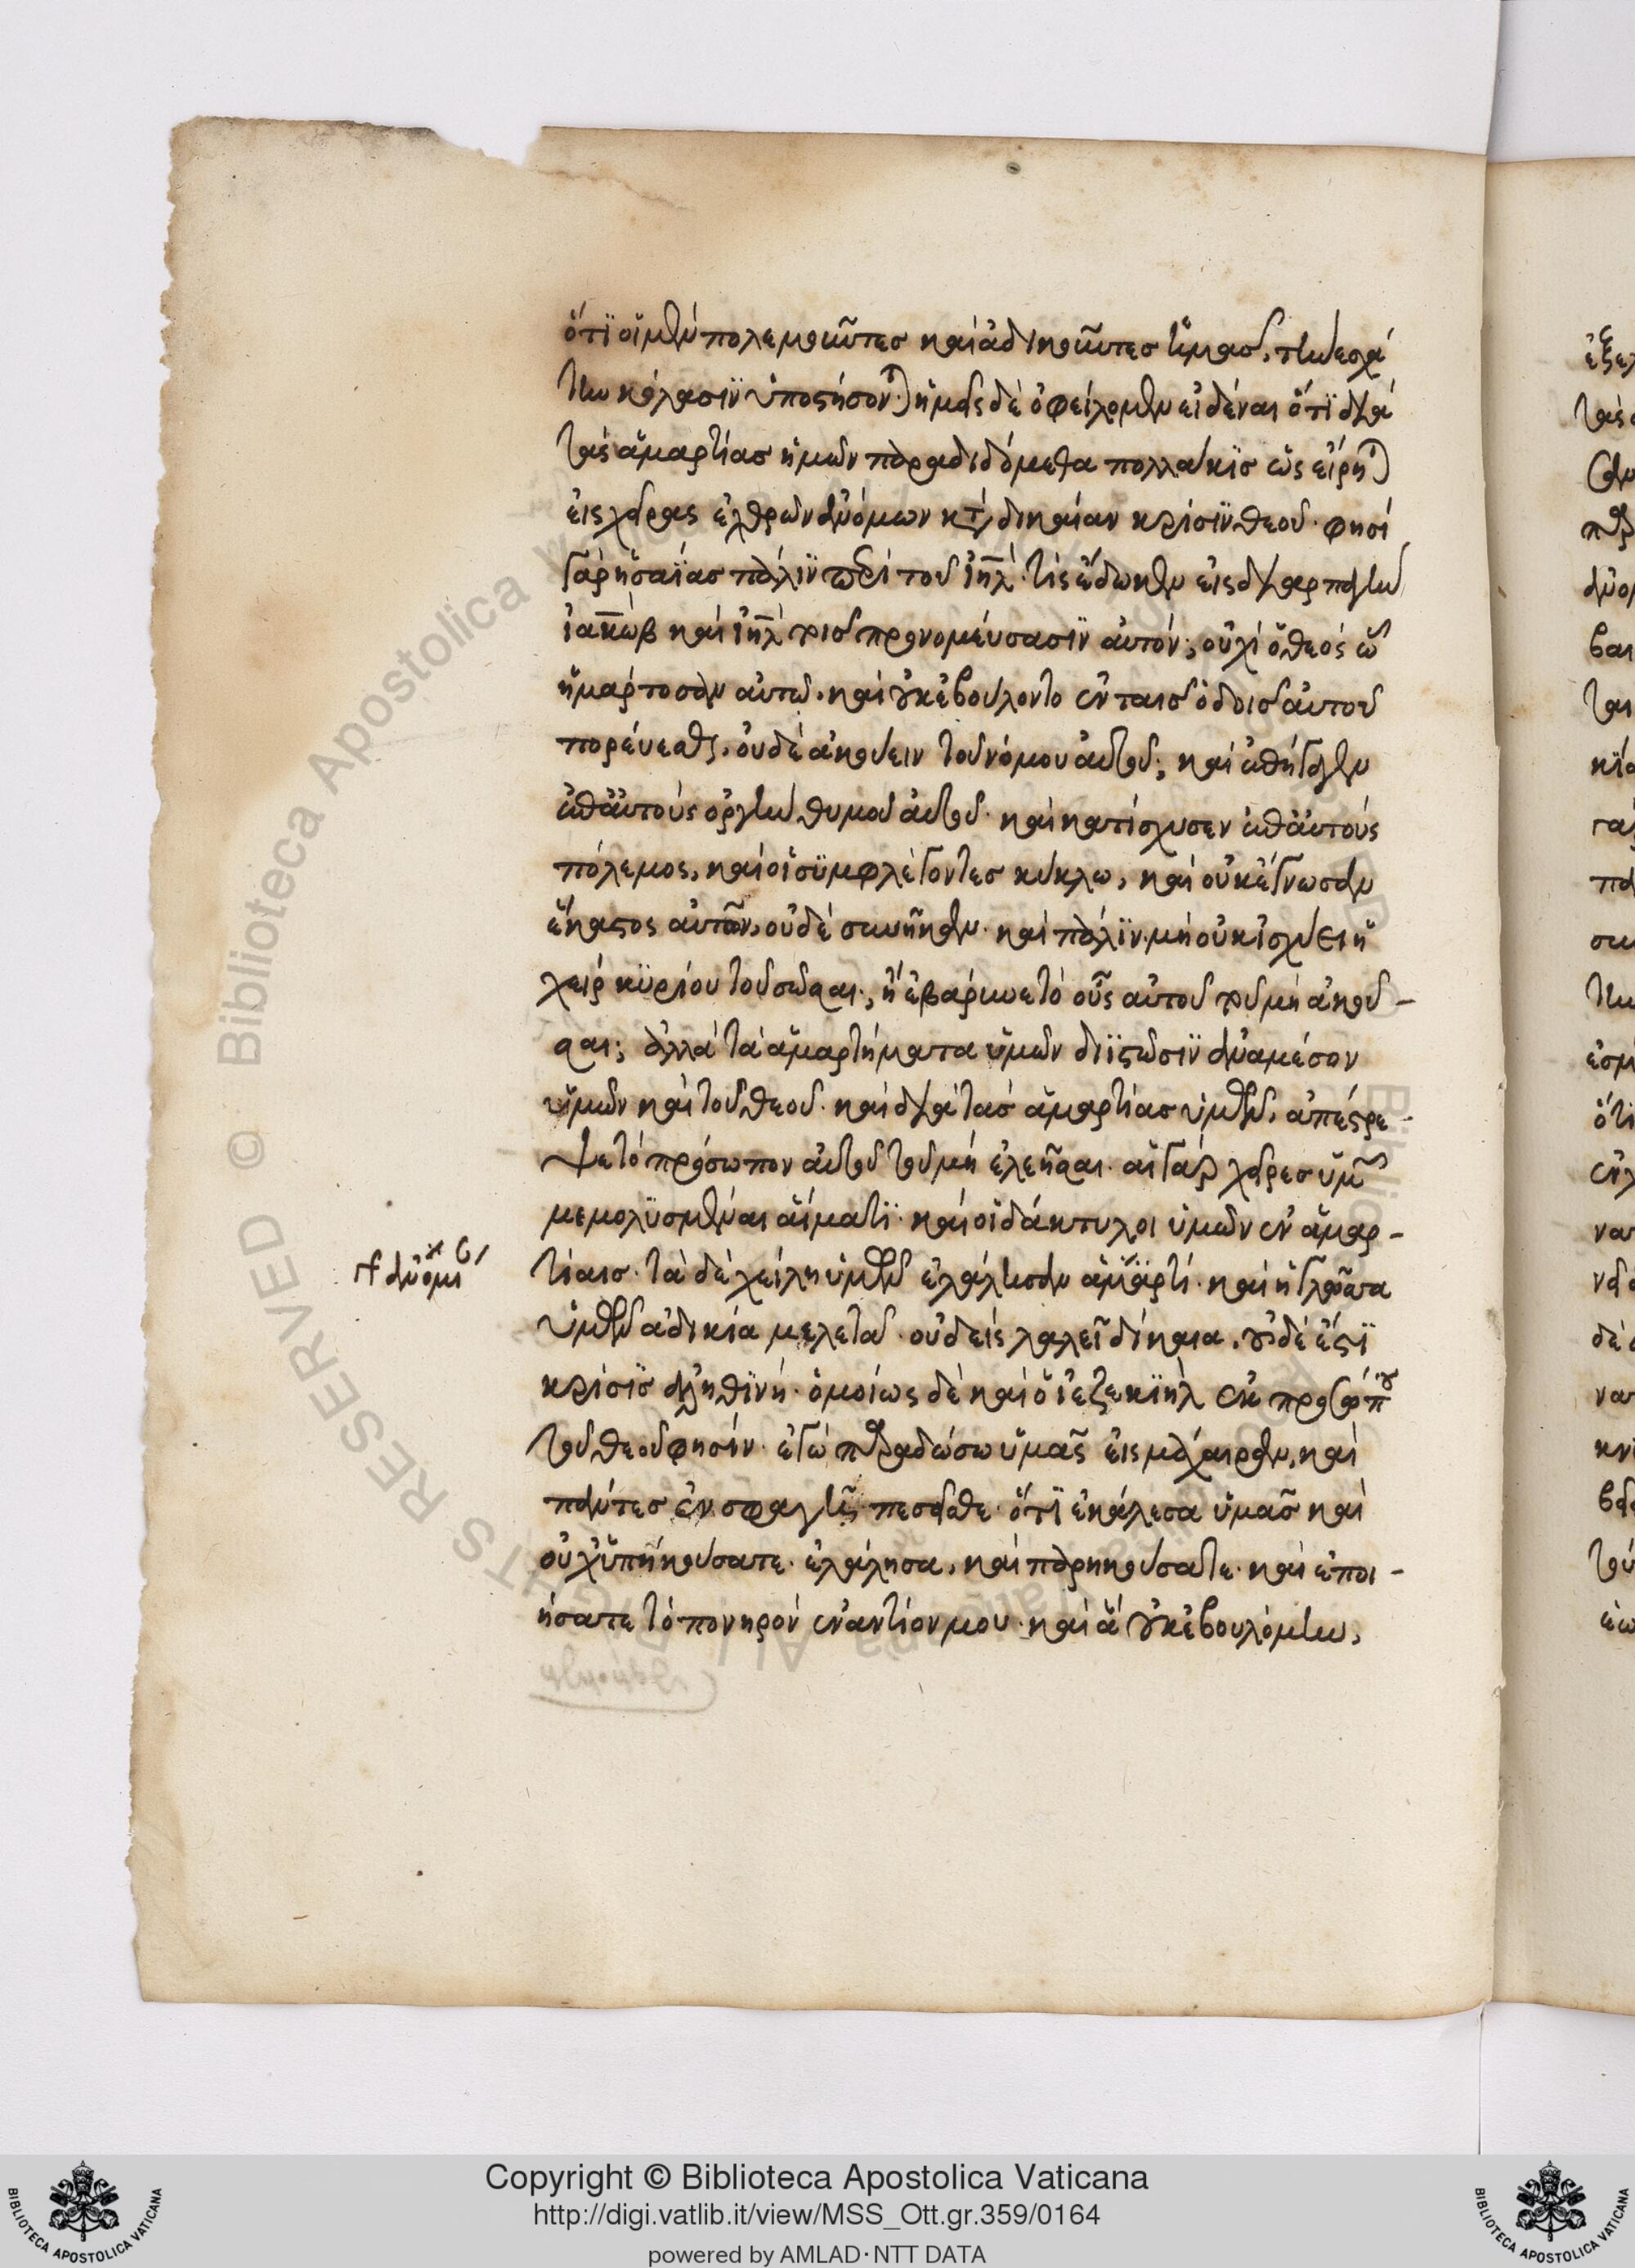 ὅτϊ οἱ μὲν πολεμοῦντες καὶ ἀδικοῦντες ὑμᾶς, τὴν ἐσχά
την κόλασϊν ὑποστήσον· ἡμᾶς δὲ ὀφείλομεν εἰδέναι ὅτϊ διὰ
τὰς ἁμαρτίας ἡμῶν παραδιδόμεθα πολλάκϊς ὡς εἴρη
εἰς χεῖρας ἐχθρῶν ἀνόμων κτ δικαίαν κρίσϊν θεοῦ· φησὶ
γὰρ ἡσαΐας πάλϊν περὶ τοῦ ἰηλ· τίς ἔδωκεν εἰς διαρπαγὴν
ἰακὼβ καὶ ἰηλ τοῖς προνομεύσασϊν αὐτόν; οὐχὶ ὁ θεός ὧ
ἡμάρτοσαν αὐτῶ. καὶ οὐκ ἐβούλοντο ἐν ταῖς ὁδοῖς αὐτοῦ
πορεύεσθαι. οὐδὲ ἀκούειν τοῦ νόμου αὐτοῦ; καὶ ἐπήγαγεν
ἐπ᾽ αὐτοὺς ὀργὴν θυμοῦ αὐτοῦ· καὶ κατίσχυσεν ἐπ᾽ αὐτοὺς
πόλεμος, καὶ οἱ συμφλέγοντες κύκλω, καὶ οὐκ ἔγνωσαν
ἕκαστος αὐτῶν, οὐδὲ συνῆκαν· καὶ πάλϊν· μὴ οὐκ ἰσχύει ἡ
χεὶρ κυρίου τοῦ σῶσαι; ἢ ἐβάρυνε τὸ οὖς αὐτοῦ τοῦ μὴ ἀκοῦ-
σαι; ἀλλὰ τὰ ἁμαρτήματα ὑμῶν διϊστῶσϊν ἀναμέσον
ὑμῶν καὶ τοῦ θεοῦ· καὶ διὰ τὰς ἁμαρτίας ὑμῶν, ἀπέστρε-
ψε τὸ πρόσωπον αὐτοῦ τοῦ μὴ ἐλεῆσαι· αἱ γὰρ χεῖρες ὑμ
μεμολυσμέναι αἵματϊ· καὶ οἱ δάκτυλοι ὑμῶν ἐν ἁμαρ-
τίαις· τὰ δὲ χείλη ὑμῶν ἐλάλησαν ἁμαρτί· καὶ ἡ γλῶσσα
ὑμῶν ἀδικία μελετᾶ· οὐδεὶς λαλεῖ δίκαια. οὐδὲ ἔστϊ
κρίσϊς ἀληθϊνή· ὁμοίως δὲ καὶ ὁ ἰεζεκϊὴλ ἐκ προσώπου
τοῦ θεοῦ φησίν· ἐγὼ παραδώσω ὑμᾶς εἰς μάχαιραν, καὶ
πάντες ἐν σφαγῆ πεσεῖσθε· ὅτϊ ἐκάλεσα ὑμᾶς καὶ
οὐχ ὑπηκούσατε· ἐλάλησα, καὶ παρηκούσατε· καὶ ἐποι-
ήσατε τὸ πονηρὸν ἐναντίον μου· καὶ ἃ οὐκ ἐβουλόμην,
Copyright © Biblioteca Apostolica Vaticana
http://digi.vatlib.it/view/MSS_Ott.gr.359/0164
powered by AMLAD·NTT DATA